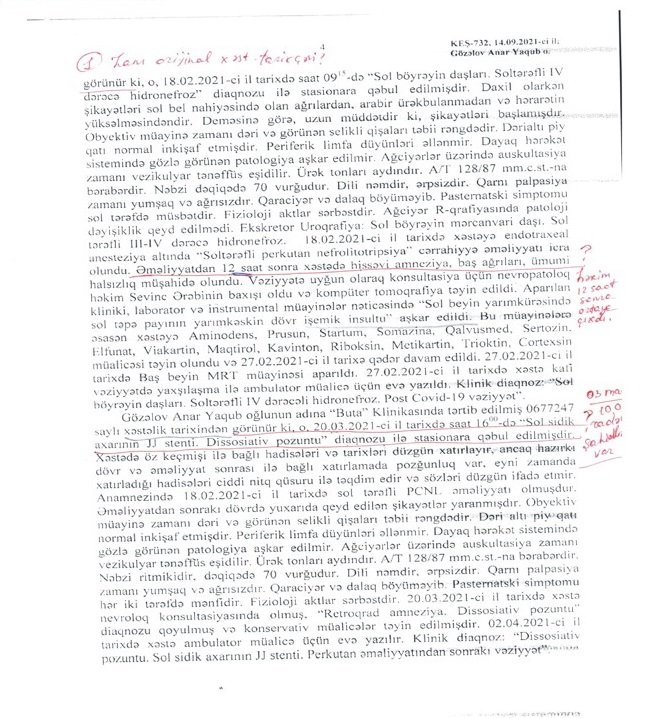 4
KEŞ-732, 14.09.2021-ci il;
Gözəlov Anar Yaqub o.
① orijinal xəst. tarixçəsi?
görünür ki, o, 18.02.2021-ci il tarixdə saat 09¹⁵-də “Sol böyrəyin daşları. Soltərəfli IV
dərəcə hidronefroz” diaqnozu ilə stasionara qəbul edilmişdir. Daxil olarkən
şikayətləri sol bel nahiyəsində olan ağrılardan, arabir ürəkbulanmadan və hərarətin
yüksəlməsindəndir. Deməsinə görə, uzun müddətdir ki, şikayətləri başlamışdır.
Obyektiv müayinə zamanı dəri və görünən selikli qişaları təbii rəngdədir. Dərialtı piy
qatı normal inkişaf etmişdir. Periferik limfa düyünləri əllənmir. Dayaq hərəkət
sistemində gözlə görünən patologiya aşkar edilmir. Ağciyərlər üzərində auskultasiya
zamanı vezikulyar tənəffüs eşidilir. Ürək tonları aydındır. A/T 128/87 mm.c.st.-na
bərabərdir. Nəbzi dəqiqədə 70 vurğudur. Dili nəmdir, ərpsizdir. Qarnı palpasiya
zamanı yumşaq və ağrısızdır. Qaraciyər və dalaq böyüməyib. Pasternatski simptomu
sol tərəfdə müsbətdir. Fizioloji aktlar sərbəstdir. Ağciyər R-qrafiyasında patoloji
dəyişiklik qeyd edilmədi. Ekskretor Uroqrafiya: Sol böyrəyin mərcanvari daşı. Sol
tərəfli III-IV dərəcə hidronefroz. 18.02.2021-ci il tarixdə xəstəyə endotraxeal
anesteziya altında “Soltərəfli perkutan nefrolitotripsiya” cərrahiyyə əməliyyatı icra
olundu. Əməliyyatdan 12 saat sonra xəstədə hissəvi amneziya, baş ağrıları, ümumi
halsızlıq müşahidə olundu. Vəziyyətə uyğun olaraq konsultasiya üçün nevropatoloq
həkim Sevinc Ərəbinin baxışı oldu və kompüter tomoqrafiya təyin edildi. Aparılan
kliniki, laborator və instrumental müayinələr nəticəsində “Sol beyin yarımkürəsində
sol təpə payının yarımkəskin dövr işemik insultu” aşkar edildi. Bu müayinələrə
əsasən xəstəyə Aminodens, Prusun, Startum, Somazina, Qalvusmed, Sertozin.
Elfunat, Viakartin, Maqtirol, Kavinton, Riboksin, Metikartin, Trioktin, Cortexsin
müalicəsi təyin olundu və 27.02.2021-ci il tarixə qədər davam edildi. 27.02.2021-cı il
tarixdə Baş beyin MRT müayinəsi aparıldı. 27.02.2021-ci il tarixdə xəstə kafi
vəziyyətdə yaxşılaşma ilə ambulator müalicə üçün evə yazıldı. Klinik diaqnoz: “Sol
böyrəyin daşları. Soltərəfli IV dərəcəli hidronefroz. Post Covid-19 vəziyyət”.
Gözəlov Anar Yaqub oğlunun adına “Buta” Klinikasında tərtib edilmiş 0677247
saylı xəstəlik tarixindən görünür ki, o, 20.03.2021-ci il tarixdə saat 16⁰⁰-də “Sol sidik
axarının JJ stenti. Dissosiativ pozuntu” diaqnozu ilə stasionara qəbul edilmişdir.
Xəstədə öz keçmişi ilə bağlı hadisələri və tarixləri düzgün xatırlayır, ancaq hazırkı
dövr və əməliyyat sonrası ilə bağlı xatırlamada pozğunluq var, eyni zamanda
xatırladığı hadisələri ciddi nitq qüsuru ilə təqdim edir və sözləri düzgün ifadə etmir.
Anamnezində 18.02.2021-ci il tarixdə sol tərəfli PCNL əməliyyatı olmuşdur.
Əməliyyatdan sonrakı dövrdə yuxarıda qeyd edilən şikayətlər yaranmışdır. Obyektiv
müayinə zamanı dəri və görünən selikli qişaları təbii rəngdədir. Dəri altı piy qatı
normal inkişaf etmişdir. Periferik limfa düyünləri əllənmir. Dayaq hərəkət sistemində
gözlə görünən patologiya aşkar edilmir. Ağciyərlər üzərində auskultasiya zamanı
vezikulyar tənəffüs eşidilir. Ürək tonları aydındır. A/T 128/87 mm.c.st.-na bərabərdir.
Nəbzi ritmikidir, dəqiqədə 70 vurğudur. Dili nəmdir, ərpsizdir. Qarnı palpasiya
zamanı yumşaq və ağrısızdır. Qaraciyər və dalaq böyüməyib. Pasternatski simptomu
hər iki tərəfdə mənfidir. Fizioloji aktlar sərbəstdir. 20.03.2021-ci il tarixdə xəstə
nevroloq konsultasiyasında olmuş, “Retroqrad amneziya. Dissosiativ pozuntu”
diaqnozu qoyulmuş və konservativ müalicələr təyin edilmişdir. 02.04.2021-ci il
tarixdə xəstə ambulator müalicə üçün evə yazılır. Klinik diaqnoz: “Dissosiativ
pozuntu. Sol sidik axarının JJ stenti. Perkutan əməliyyatından sonrakı vəziyyət”
?
həkim
12 saat
sonra
ortaya
çıxdı.
03 
? 10,0
var